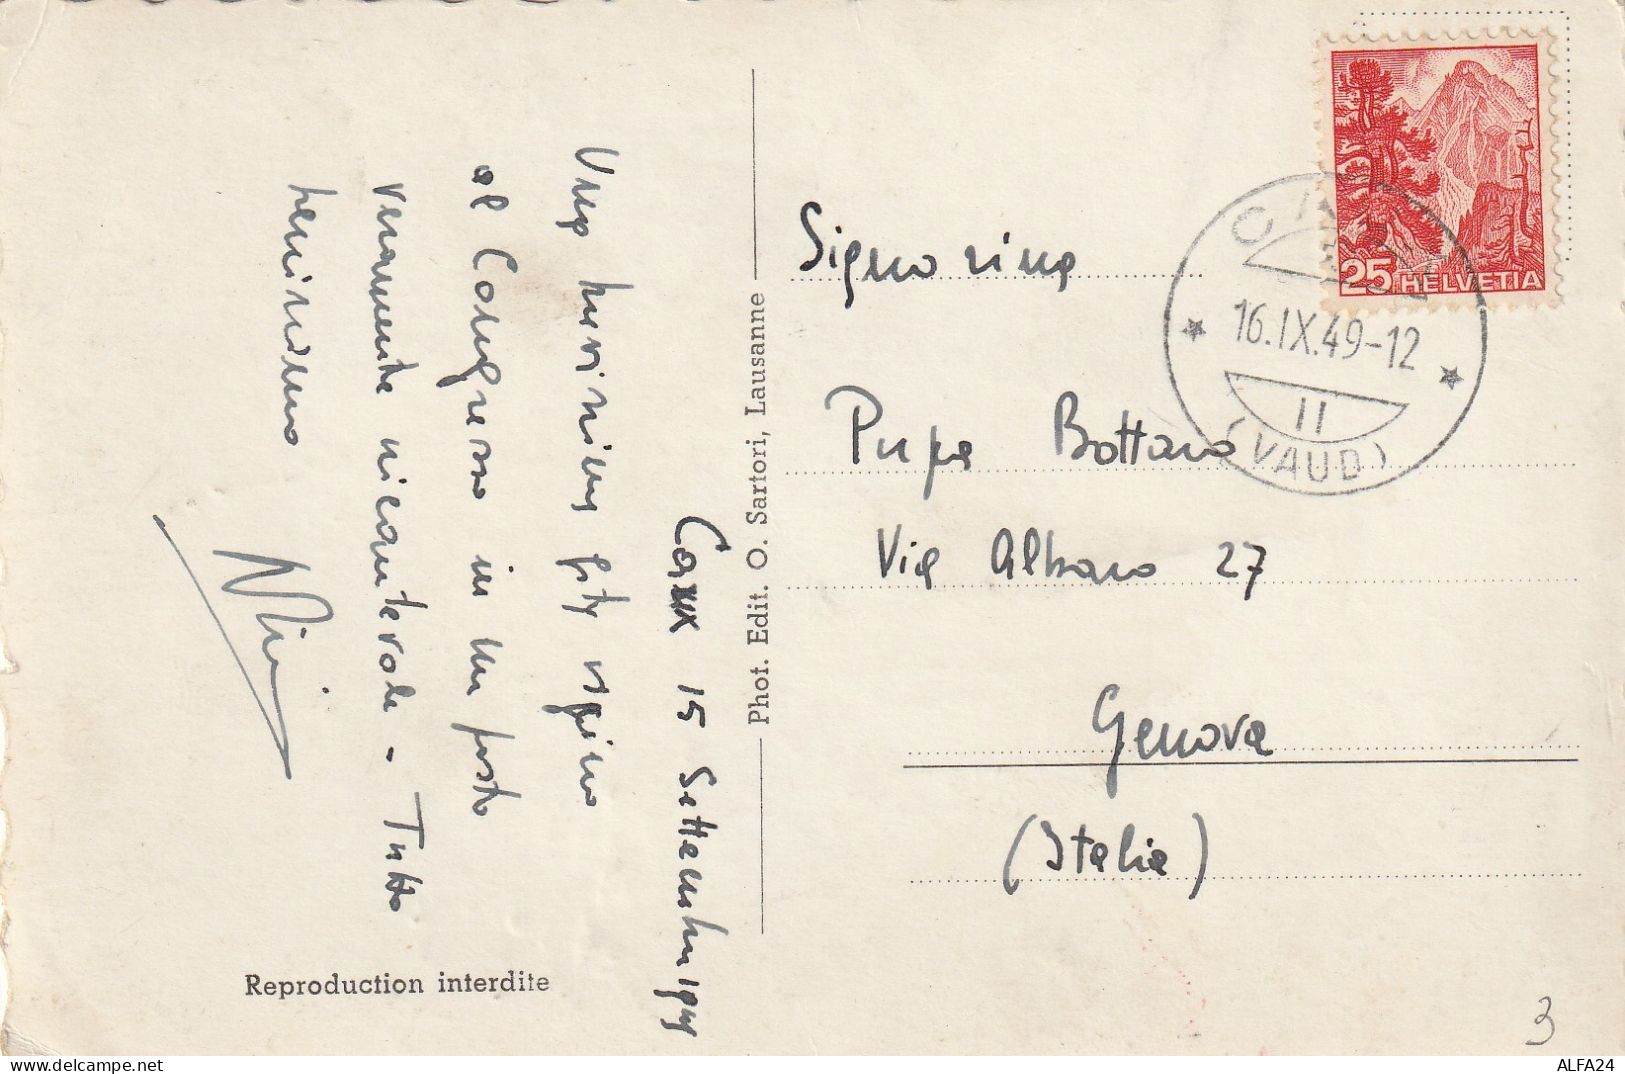 Caux 15 Settembre 1949
Una bellissima gita
al Congresso in un posto
veramente incantevole - Tutto
benissimo
Reproduction interdite
Phot. Edit. O. Sartori, Lausanne
25 HELVETIA
16.IX.49-12
II
(VAUD)
Signorina
Pupa Bottaro
Via Albaro 27
Genova
(Italia)
3
ALFA24